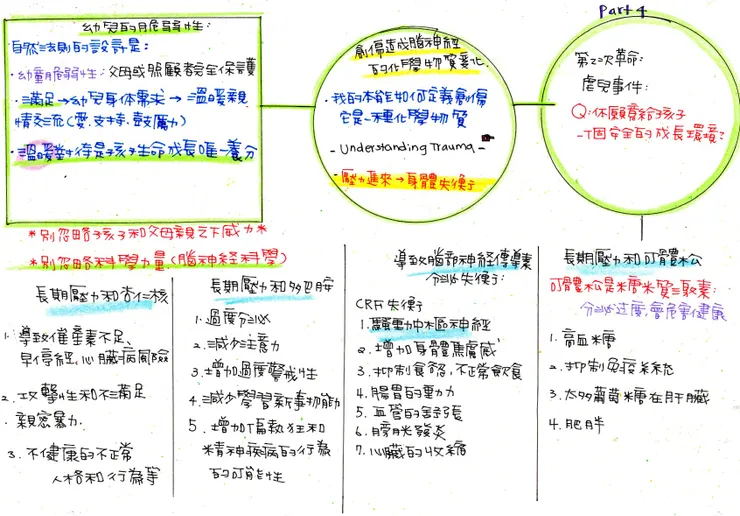 Part 4
幼兒的脆弱性:
自然法則的設計是:
·幼童脆弱性:父母或照顧者完全保護
·滿足→幼兒身体需求→溫暖親
情交流(愛.支持.鼓勵力)
·溫暖對待是孩子生命成長唯一養分
創傷造成腦神經
的化學物質變化.
·我的本能如何定義創傷
它是一種化學物質
- Understanding Trauma -
- 壓力進來→身體失衡
第2次革命:
虐兒事件:
Q:你願意給孩子
一個安全的成長環境?
*別忽略孩子和父母親之下威力*
*別忽略科學力量.(腦神經科學)
長期壓力和杏仁核
1. 導致催產素不足、
早停經.心臟病風險
2. 攻擊性和不滿足
親密暴力.
3. 不健康的不正常
人格和行為等
長期壓力和多巴胺
1. 過度分泌
2. 減少注意力
3. 增加過度警戒性
4. 減少學習新事物能力
5. 增加偏執狂和
精神疾病的行為
的可能性
導致腦部神經傳導素
分泌失衡:
CRF失衡
1. 騷動中樞神經
2. 增加身體焦慮感
3. 抑制食慾,不正常飲食
4. 腸胃的重力
5. 血管的舒張
6. 膀胱發炎
7. 心臟的收縮
長期壓力和可體松
可體松是糖米質激素:
分泌过度,會危害健康
1. 高血糖
2. 抑制免疫系統
3. 太多葡萄糖在肝臟
4. 肥胖